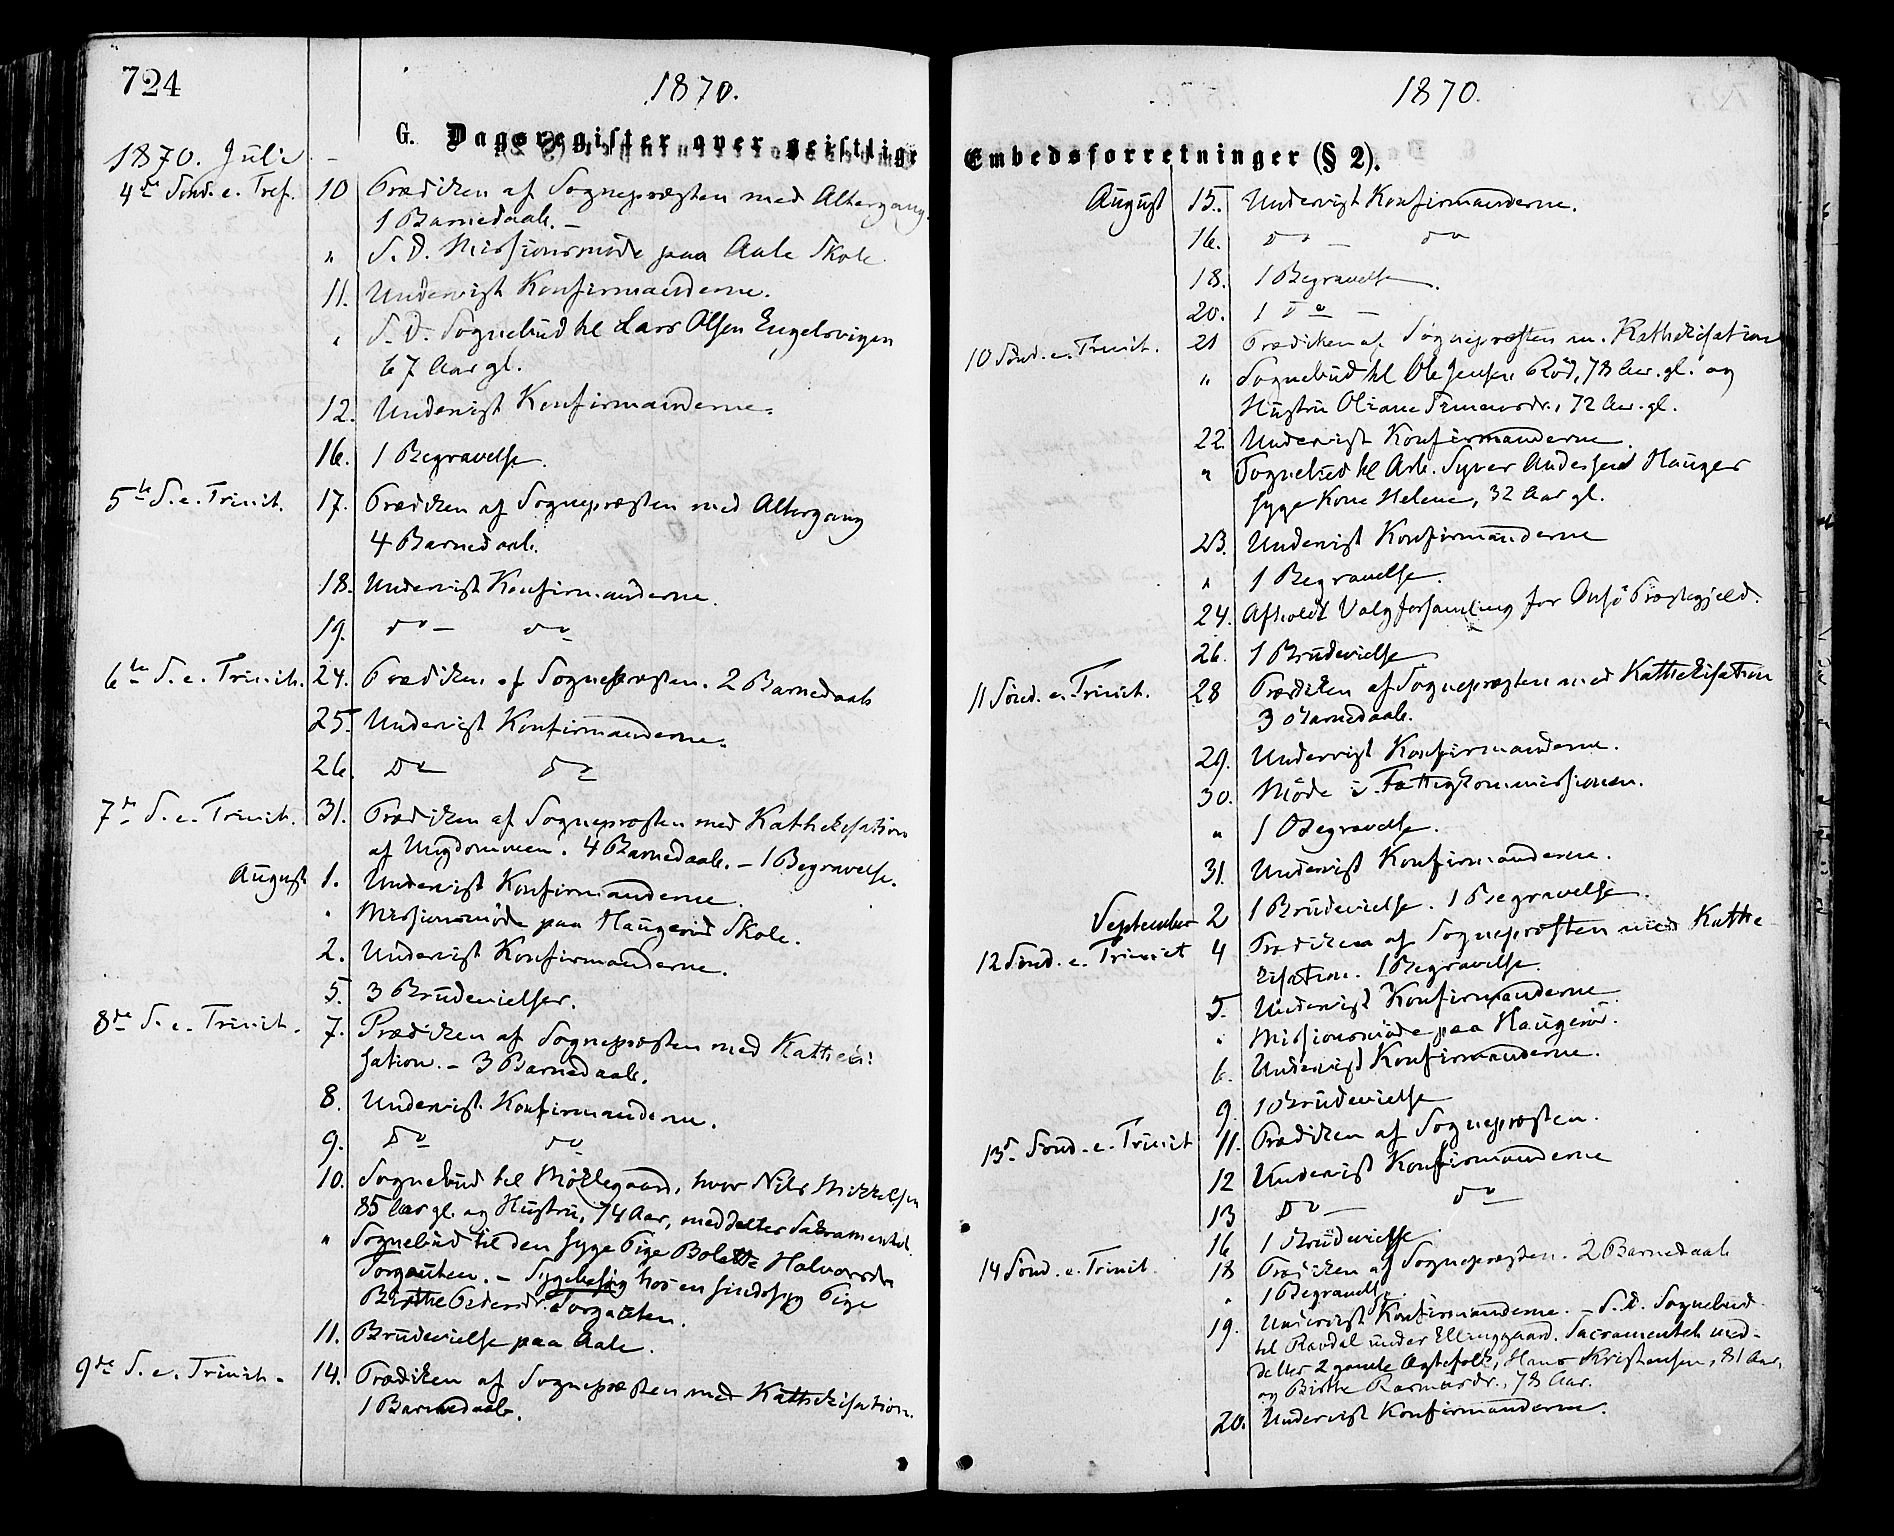 724
1870.
G. Dagsregister over geistlige
1870. Juli
4de Sönd. e. Tref. 10 Prædiken af Sognepræsten med Altergang.
1 Barnedaab. –
" S. D. Missionsmöde paa Aale Skole
11. Underviist Konfirmanderne.
" S. D. Sognebud til Lars Olsen Engelsvigen
67 Aar gl.
12. Underviist Konfirmanderne.
16. 1 Begravelse.
5te S. e. Trinit. 17. Prædiken af Sognepræsten med Altergang
4 Barnedaab.
18. Underviist Konfirmanderne.
19. Do – do
6te S. e. Trinit. 24. Prædiken af Sognepræsten. 2 Barnedaab
25. Underviist Konfirmanderne.
26. Do do
7de S. e. Trinit. 31. Prædiken af Sognepræsten med Kathekisation
af Ungdommen. 4 Barnedaab. – 1 Begravelse.
August 1. Underviist Konfirmanderne.
" Missionsmöde paa Haugeröd Skole.
2. Underviist Konfirmanderne.
5. 3 Brudevielser.
8de S. e. Trinit. 7. Prædiken af Sognepræsten med Katheki:
sation. – 3 Barnedaab.
8. Underviist Konfirmanderne.
9. Do do
10. Sognebud til Möllegaard, hvor Nils Mikkelsen
85 Aar gl. og Hustru, 74 Aar, meddeltes Sakramentet.
" Sognebud til den syge Pige Bolette Halvorsdr
Torgauten. – Sygebesög hos en sindssyg Pige
Birthe Pedersdr. Torgauten.
11. Brudevielse paa Aale.
9de S. e. Trinit. 14. Prædiken af Sognepræsten med Kathekisation.
1 Barnedaab.
1870.
Embedsforretninger (§ 2).
August 15. Underviist Konfirmanderne.
16. Do – do
18. 1 Begravelse.
20. 1 Do –
10 Sönd. e. Trinit. 21 Prædiken af Sognepræsten m. Kathekisation
" Sognebud til Ole Jensen Röd, 78 Aar. gl. og
Hustru Oliane , 72 Aar. gl.
22. Underviist Konfirmanderne.
" Sognebud til Arb. Syver Andersen Hauges
syge Kone Helene, 32 Aar gl.
23. Underviist Konfirmanderne
" 1 Begravelse.
24. Afholdt Valgforsamling for Onsö Præstegjeld.
26. 1 Brudevielse
11 Sönd. e. Trinit. 28 Prædiken af Sognepræsten med Kathekisation
3 Barnedaab.
29. Underviist Konfirmanderne.
30. Möde i Fattigkommissionen.
" 1 Begravelse.
31. Underviist Konfirmanderne.
September 2 1 Brudevielse. 1 Begravelse.
12 Sönd. e. Trinit 4 Prædiken af Sognepræsten med Kathe-
kisation. 1 Begravelse.
5. Underviist Konfirmanderne
" Missionsmöde paa Haugeröd.
6. Underviist Konfirmanderne.
9. 1 Brudevielse
13de Sönd. e. Trinit 11. Prædiken af Sognepræsten.
12 Underviist Konfirmanderne
13 Do – do
16 1 Brudevielse
14 Sönd. e. Trinit. 18 Prædiken af Sognepræsten. 2 Barnedaab
" 1 Begravelse.
19. Underviist Konfirmanderne. – S. D. Sognebud
til Ravdal under Ellinggaard. Sacramentet med-
deltes 2 gamle Ægtefolk, Hans Kristensen, 81 Aar,
og Birthe Rasmusdr., 78 Aar.
20. Underviist Konfirmanderne.